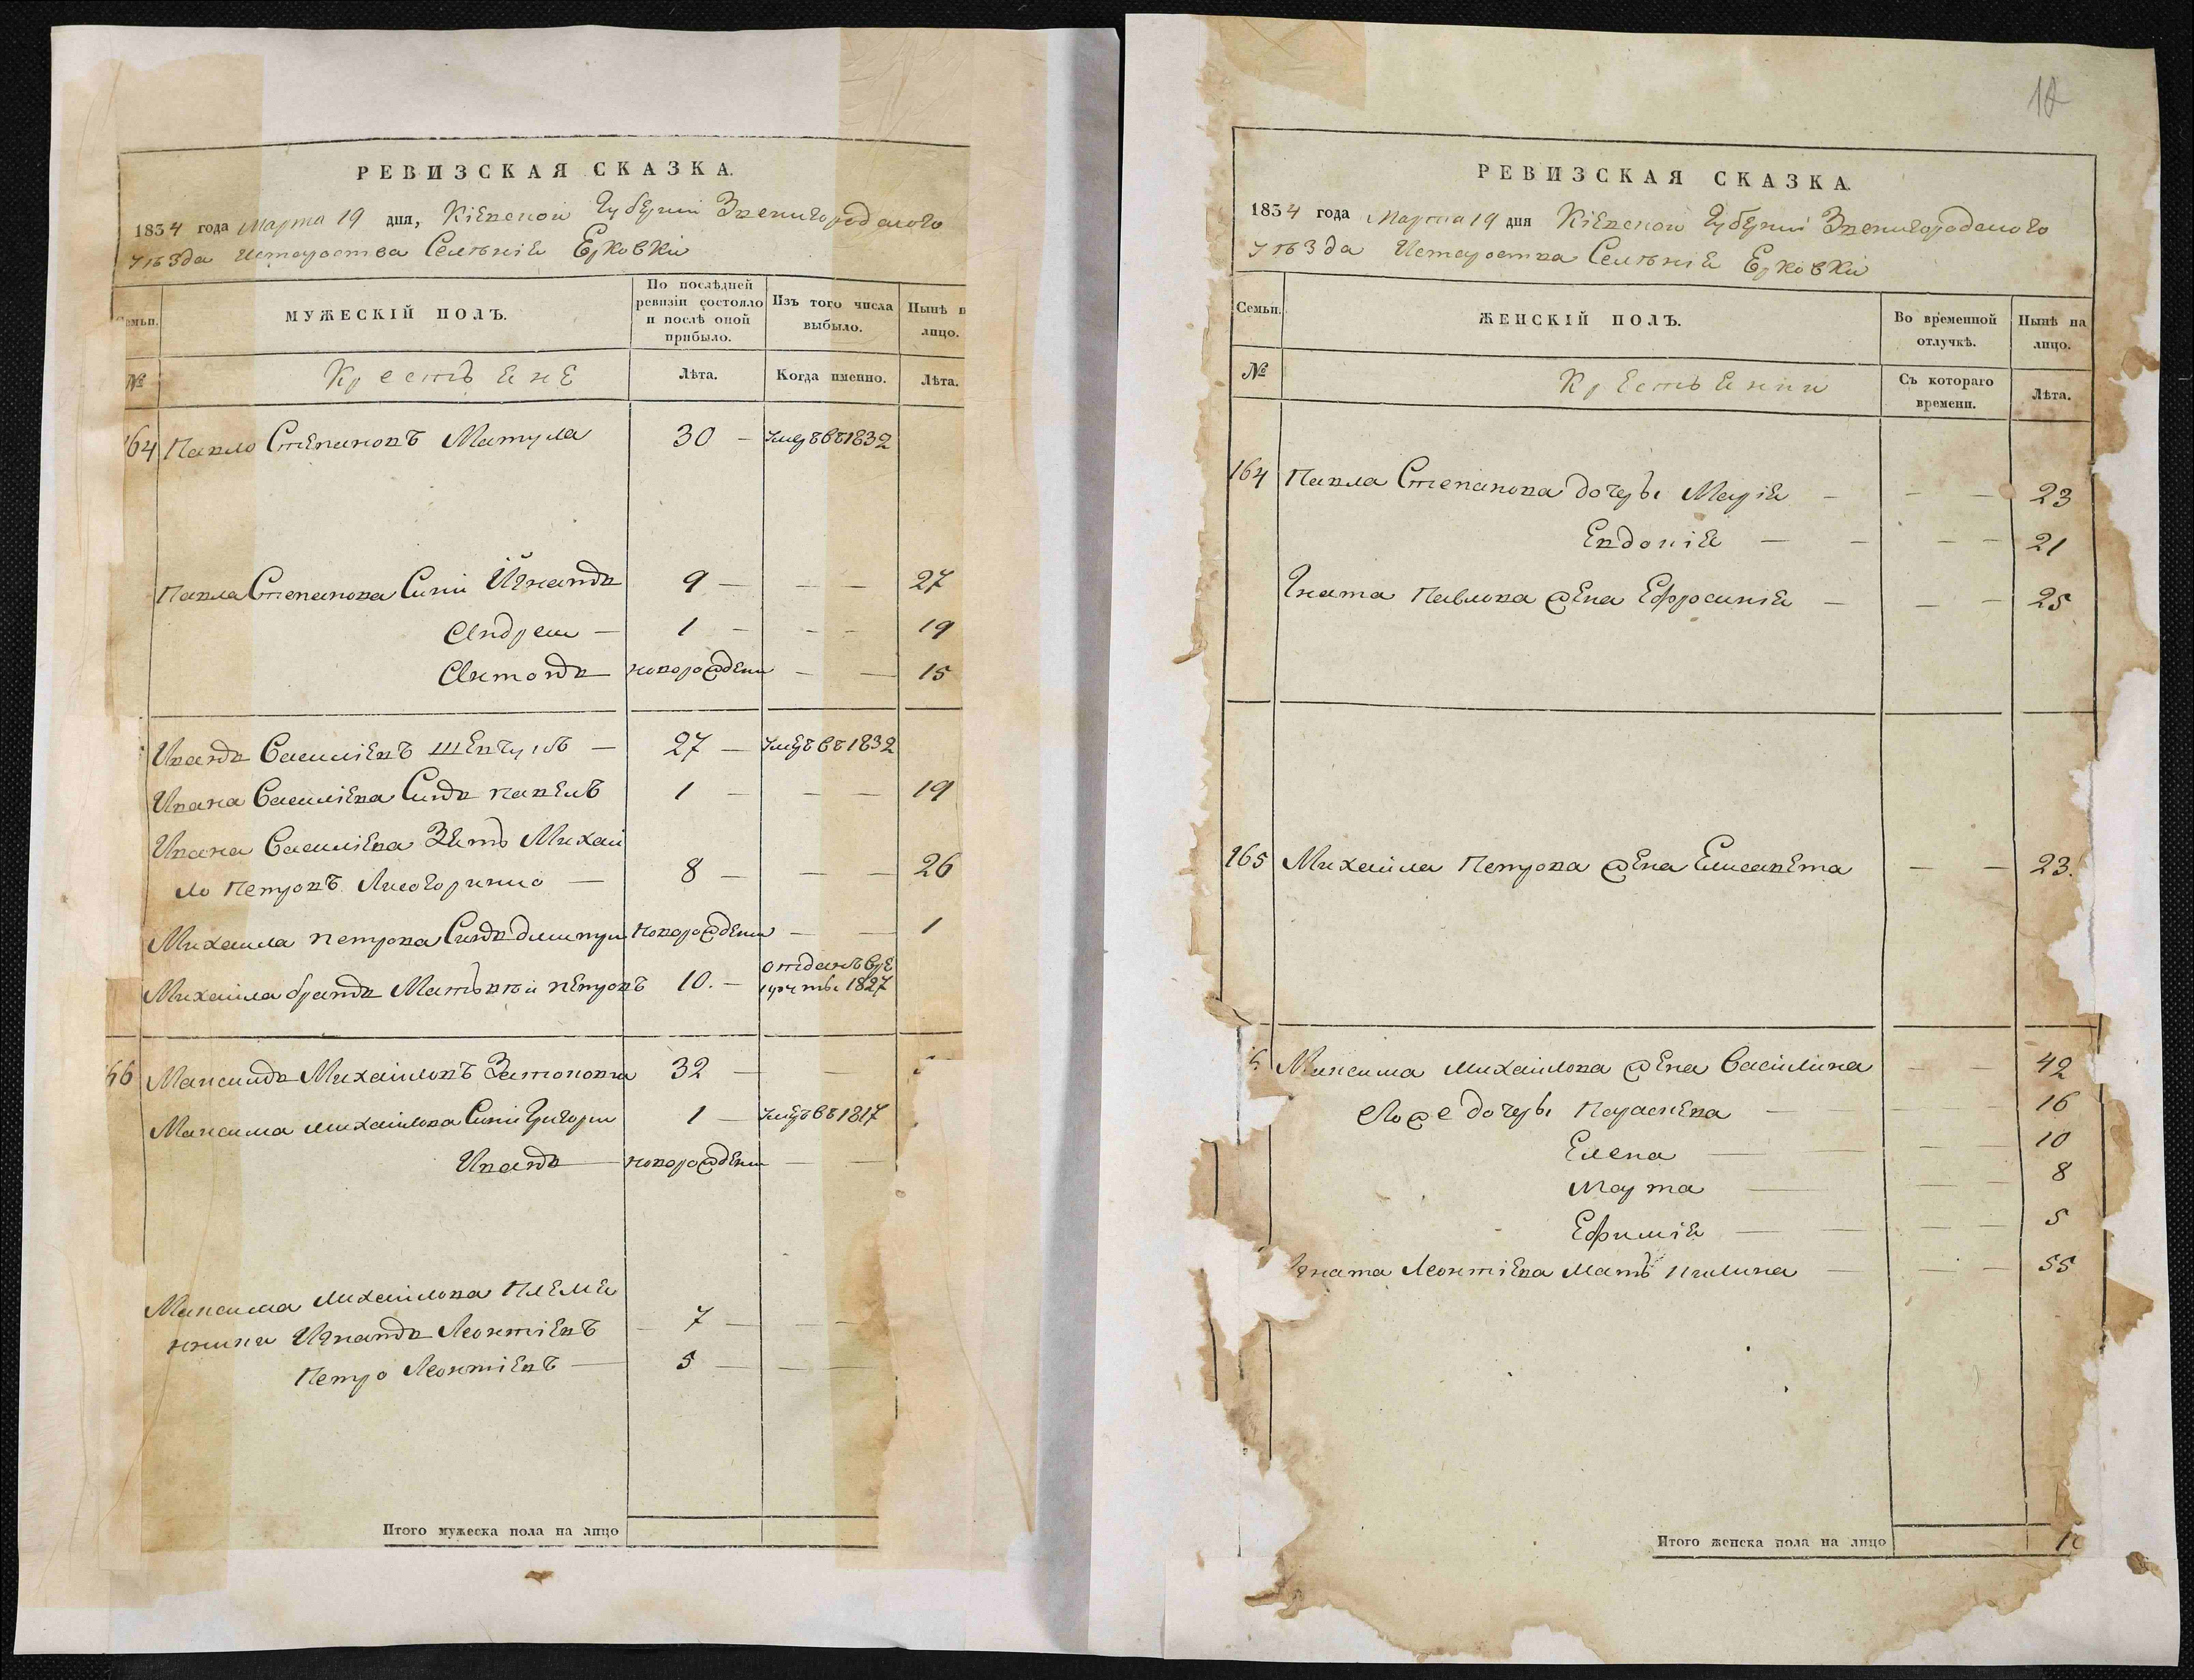 РЕВИЗСКАЯ СКАЗКА.
1834 года Марта 19 дня, Кіевской Губерніи Звенигородского
уѣзда Селѣнія Ерковки
Семьи.
МУЖЕСКІЙ ПОЛЪ.
По послѣдней ревизіи состояло и послѣ оной прибыло.
Изъ того числа выбыло.
Нынѣ н лицо.
№
Крестьяне
Лѣта.
Когда именно.
Лѣта.
164 Павло Степановъ Матула 30 — умеръ въ 1832
Павла Степанова Сини Игнатъ 9 — — — 27
Андреи — 1 — — — 19
Антонъ — новорожденн — — 15
Иванъ Василіевъ Шевчукъ — 27 — умеръ въ 1832
Ивана Василіева Синъ павелъ 1 — — — 19
Ивана Василіева Зять Михаи
ло Петровъ — 8 — — — 26
Михаила петрова Синъ дмитри новорожденн — — 1
Михаила братъ Матьвѣи петровъ 10. — отданъ в ре
круты 1827
66 Максимъ Михаиловъ 32 — — —
Максима михаилова Сини Григори 1 — умеръ въ 1817
Иванъ — новорожденн — —
Максима михаилова племя
нники Игнатъ Леонтіевъ — 7 — — —
Петро Леонтіевъ — 5 — — —
Итого мужеска пола на лицо
18
РЕВИЗСКАЯ СКАЗКА.
1834 года Марта 19 дня Кіевской Губерніи Звенигородского
уѣзда Селѣнія Ерковки
Семьи.
ЖЕНСКІЙ ПОЛЪ.
Во временной отлучкѣ.
Нынѣ на лицо.
№
Крестьянки
Съ котораго времени.
Лѣта.
164 Павла Степанова дочерьи Марія — — — 23
Евдокія — — — — 21
Гната Павлова жена Ефросинія — — — 25
165 Михаила Петрова жена Елисавета — — 23.
6 Максима михаилова жена Василина — — 42
Его же дочерьи Параскева — — — 16
Елена — — — — 10
Марта — — — 8
Ефимія — — — — 5
Гната Леонтіева мать Килина — — — 55
Итого женска пола на лицо